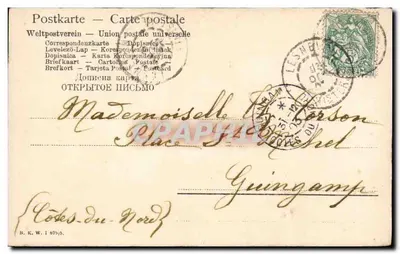 Postkarte - Carte postale
Weltpostverein - Union postale universelle
Correspondenzkarte - Dopisnice
Levelező-Lap - Korespondencni listek
Dopisnica - Karta Korespondencyjna
Briefkaart - Cartolina Postale
Brefkort - Tarjeta Postal - Postcard
Дописна карта
ОТКРЫТОЕ ПИСЬМО
Mademoiselle Corson
Place St Michel
Guingamp
(Côtes-du-Nord)